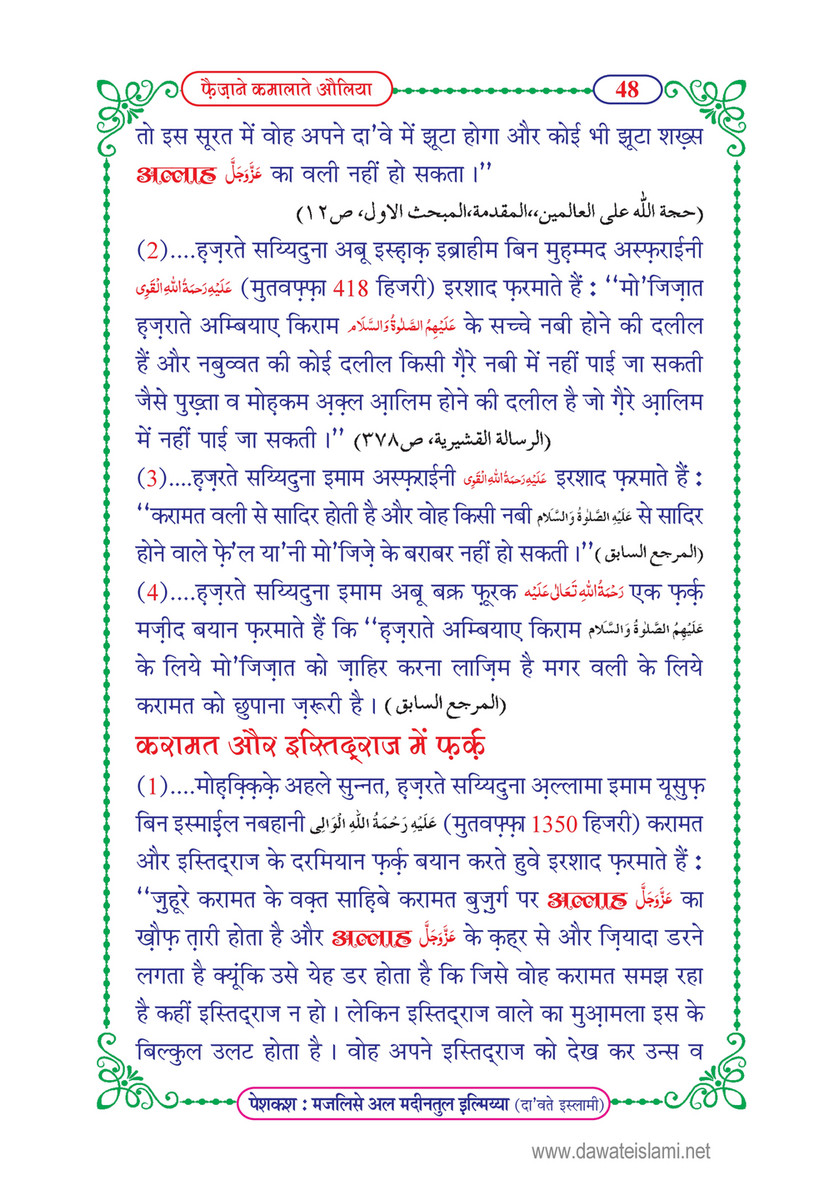 फ़ैज़ाने कमालाते औलिया
48
तो इस सूरत में वोह अपने दा'वे में झूटा होगा और कोई भी झूटा शख़्स
अल्लाह عَزَّوَجَلَّ का वली नहीं हो सकता ।"
(حجة اللّٰه على العالمين،،المقدمة،المبحث الاول، ص١٢)
(2)....हज़रते सय्यिदुना अबू इस्हाक़ इब्राहीम बिन मुहम्मद अस्फ़राईनी
عَلَيْهِ رَحْمَةُ اللّٰهِ الْقَوِى (मुतवफ़्फ़ा 418 हिजरी) इरशाद फ़रमाते हैं : "मो'जिज़ात
हज़राते अम्बियाए किराम عَلَيْهِمُ الصَّلٰوةُ وَالسَّلَام के सच्चे नबी होने की दलील
हैं और नबुव्वत की कोई दलील किसी ग़ैरे नबी में नहीं पाई जा सकती
जैसे पुख़्ता व मोहकम अ़क़्ल आ़लिम होने की दलील है जो ग़ैरे आ़लिम
में नहीं पाई जा सकती ।" (الرسالة القشيرية، ص٣٧٨)
(3)....हज़रते सय्यिदुना इमाम अस्फ़राईनी عَلَيْهِ رَحْمَةُ اللّٰهِ الْقَوِى इरशाद फ़रमाते हैं :
"करामत वली से सादिर होती है और वोह किसी नबी عَلَيْهِ الصَّلٰوةُ وَالسَّلَام से सादिर
होने वाले फ़े'ल या'नी मो'जिज़े के बराबर नहीं हो सकती ।" (المرجع السابق)
(4)....हज़रते सय्यिदुना इमाम अबू बक्र फ़ूरक رَحْمَةُ اللّٰهِ تَعَالٰى عَلَيْه एक फ़र्क़
मज़ीद बयान फ़रमाते हैं कि "हज़राते अम्बियाए किराम عَلَيْهِمُ الصَّلٰوةُ وَالسَّلَام
के लिये मो'जिज़ात को ज़ाहिर करना लाज़िम है मगर वली के लिये
करामत को छुपाना ज़रूरी है । (المرجع السابق)
करामत और इस्तिद्राज में फ़र्क़
(1)....मोहक़्क़िक़े अहले सुन्नत, हज़रते सय्यिदुना अ़ल्लामा इमाम यूसुफ़
बिन इस्माईल नबहानी عَلَيْهِ رَحْمَةُ اللّٰهِ الْوَالِى (मुतवफ़्फ़ा 1350 हिजरी) करामत
और इस्तिद्राज के दरमियान फ़र्क़ बयान करते हुवे इरशाद फ़रमाते हैं :
"ज़ुहूरे करामत के वक़्त साहिबे करामत बुज़ुर्ग पर अल्लाह عَزَّوَجَلَّ का
ख़ौफ़ त़ारी होता है और अल्लाह عَزَّوَجَلَّ के क़हर से और ज़ियादा डरने
लगता है क्यूंकि उसे येह डर होता है कि जिसे वोह करामत समझ रहा
है कहीं इस्तिद्राज न हो । लेकिन इस्तिद्राज वाले का मुआ़मला इस के
बिल्कुल उलट होता है । वोह अपने इस्तिद्राज को देख कर उन्स व
पेशकश : मजलिसे अल मदीनतुल इल्मिय्या (दा'वते इस्लामी)
www.dawateislami.net